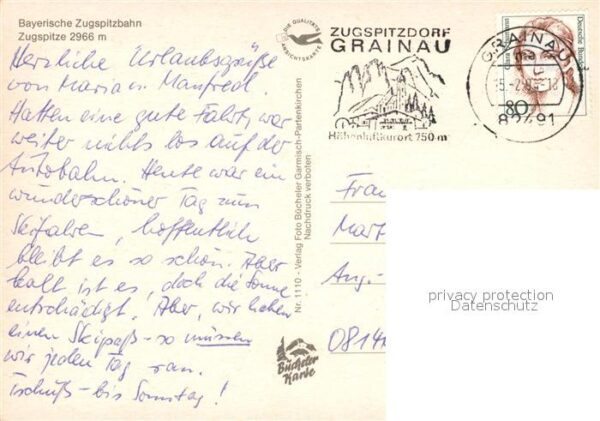 Bayerische Zugspitzbahn
Zugspitze 2966 m
Herzliche Urlaubsgrüße
von Maria u. Manfred.
Hatten eine gute Fahrt, war
weiter nichts los auf der
Autobahn. Heute war ein
wunderschöner Tag zum
Skifahren, hoffentlich
bleibt es so schön. Aber
kalt ist es, doch die Sonne
entschädigt. Aber, wir haben
einen Skipaß - so müssen
wir jeden Tag ran.
Tschüß - bis Sonntag!
DIE QUALITÄTS
ANSICHTSKARTE
Nr. 1110 - Verlag Foto Bücheler Garmisch-Partenkirchen
Nachdruck verboten
Bücheler
Karte
ZUGSPITZDORF
GRAINAU
Höhenluftkurort 750 m
GRAINAU
82491
Deutsche Bundespost
80
Frau
Mart
Aug.-
0814
privacy protection
Datenschutz